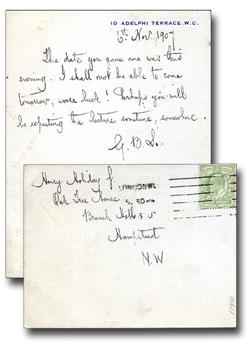 10 ADELPHI TERRACE, W.C.
6th Nov. 1907
The date you gave me was this
evening. I shall not be able to come
tomorrow, worse luck! Perhaps you will
be repeating the lecture sometime, somewhere.
G.B.S.
Henry Holiday
Oak Tree House
Branch Hill
Hampstead
N.W